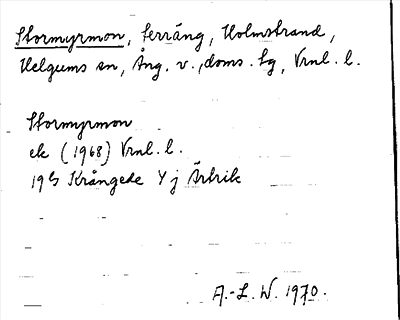 Stormyrmon, terräng, Holmstrand,
Helgums sn, Ång. v., doms. tg, Vrnl. l.
Stormyrmon
ek (1968) Vrnl. l.
Krångede Y j Ärtrik
A.-L. W. 1970.